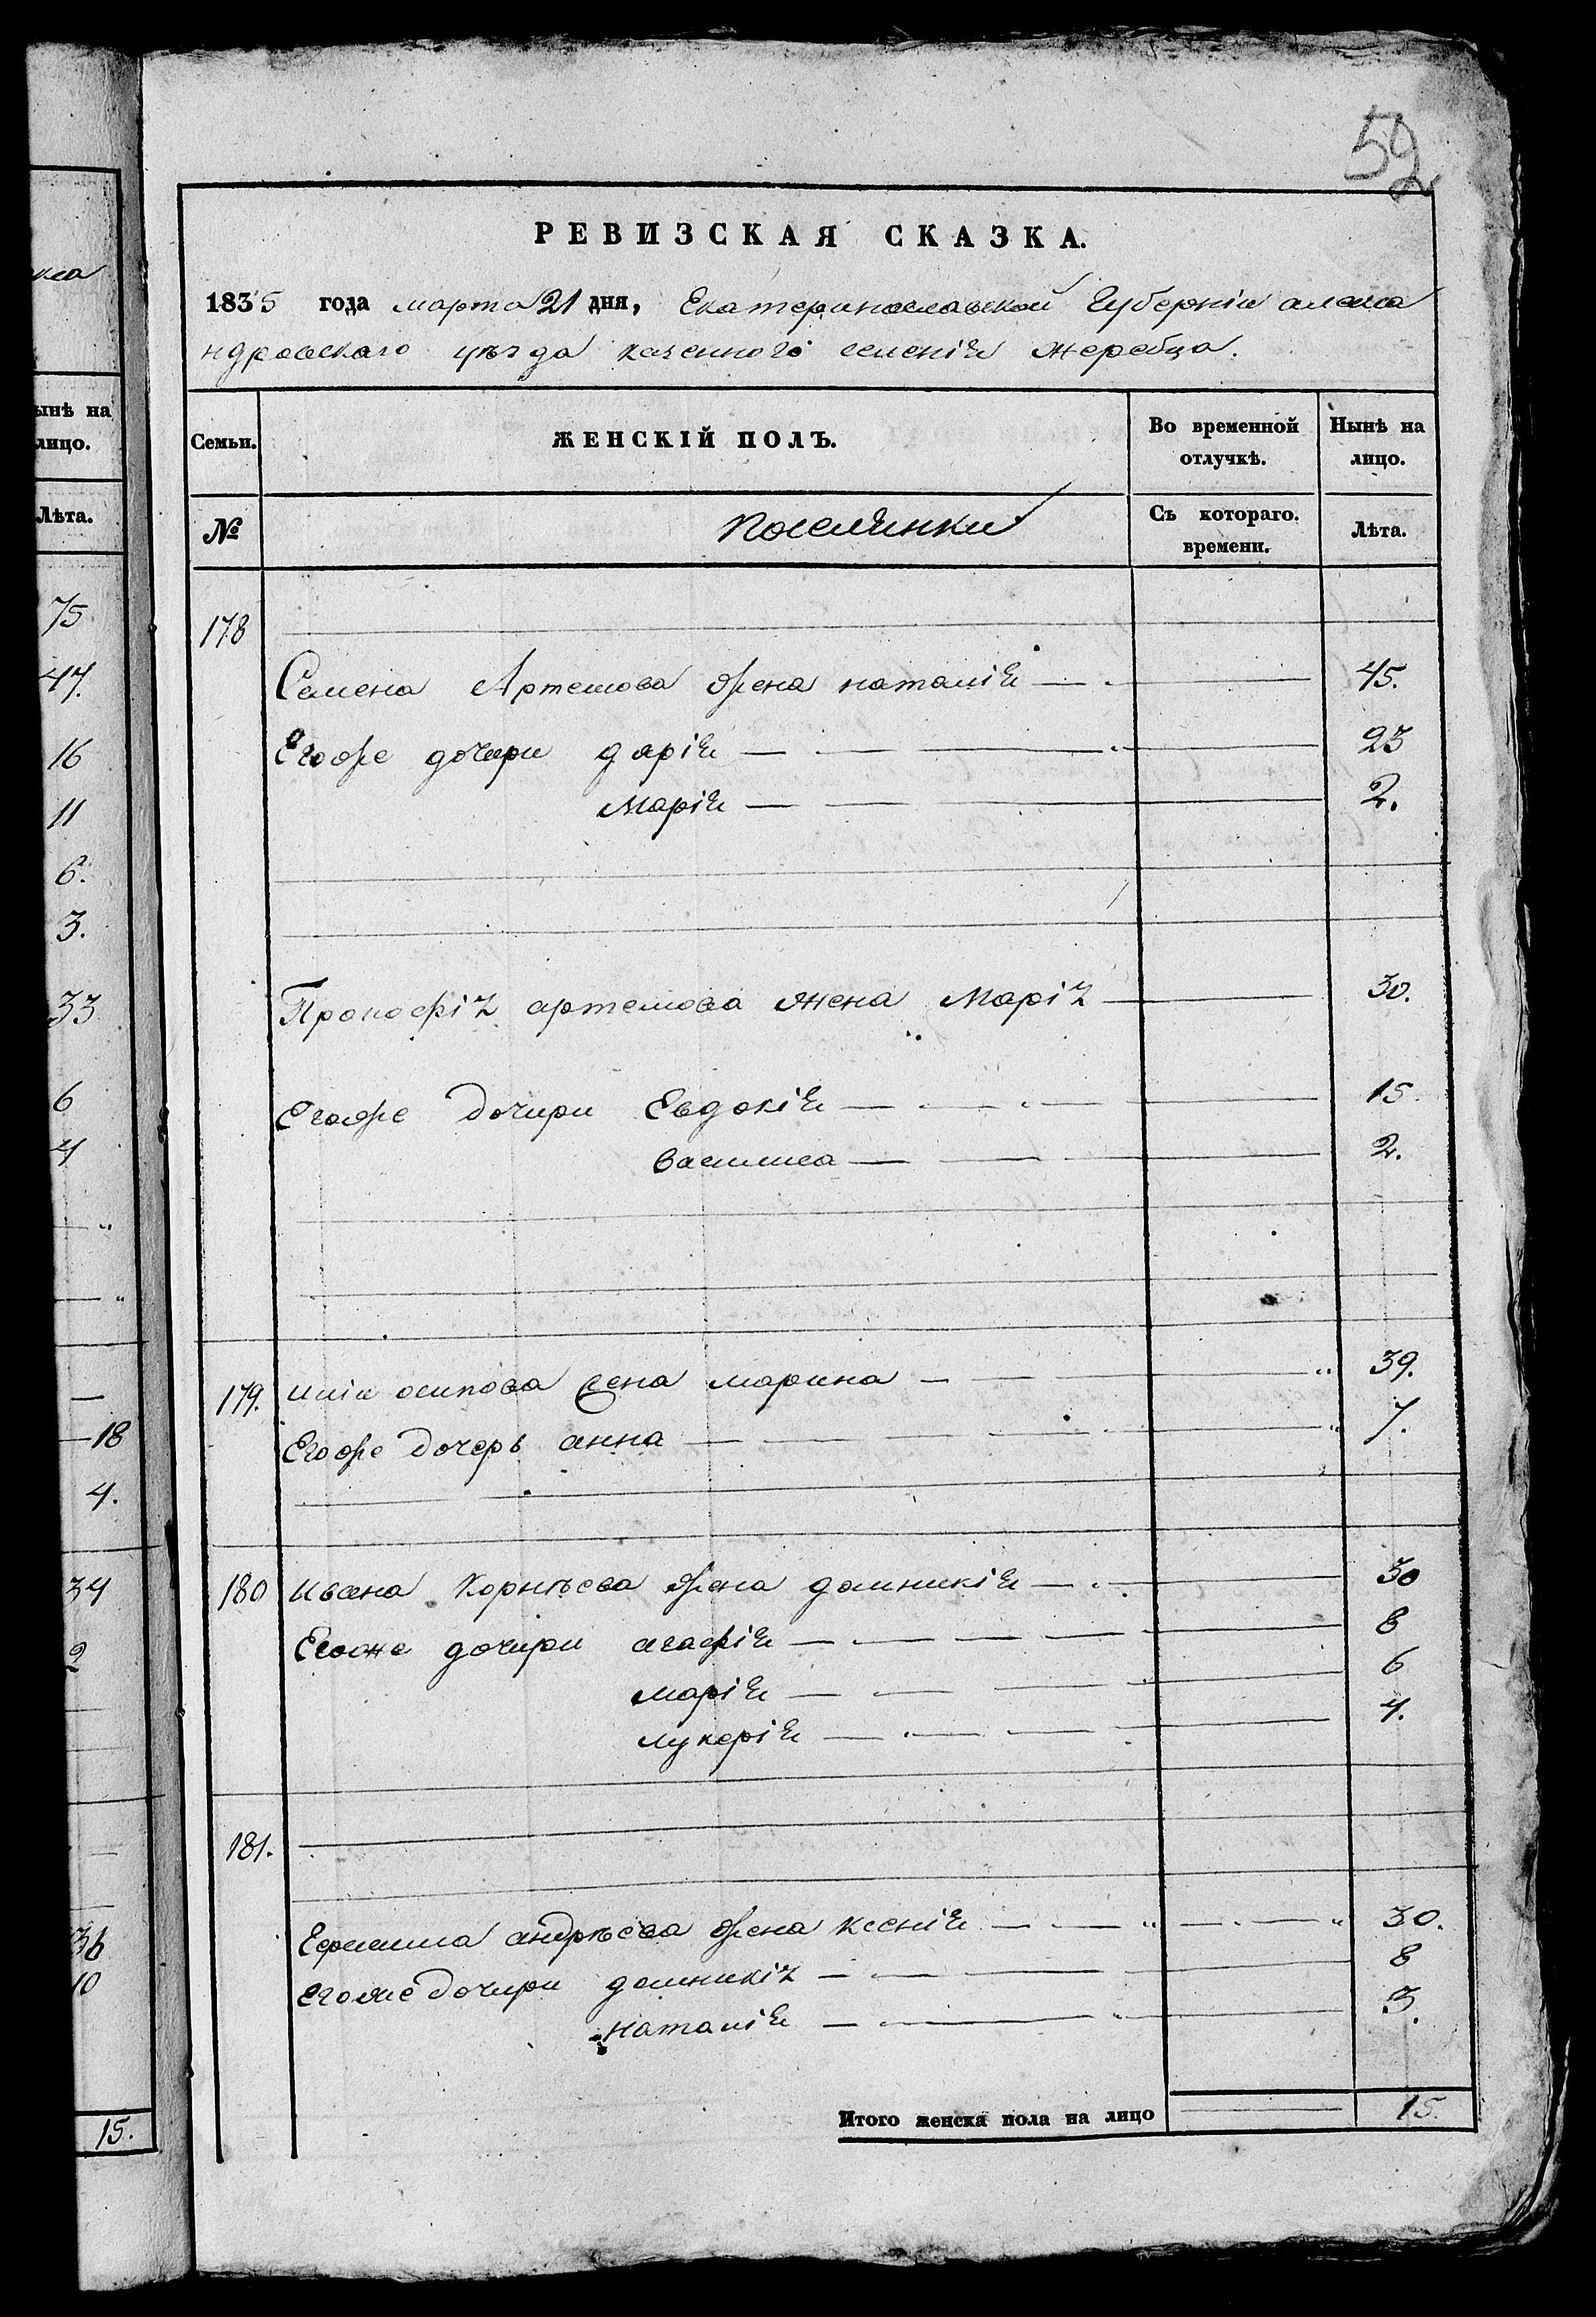 кла
ынѣ на
лицо.
Лѣта.
75
47.
16
11
6.
3.
33
6
4
18
4.
34
2
36
10
15.
52
РЕВИЗСКАЯ СКАЗКА.
1835 года марта 21 дня, Екатеринославской Губерніи алекса
ндровскаго уѣзда казенного селенія жеребца.
Семьи. ЖЕНСКІЙ ПОЛЪ. Во временной отлучкѣ. Нынѣ на лицо.
№ поселянки Съ котораго. времени. Лѣта.
178
Семена Артемова жена наталія 45.
Егоже дочери дарія 23
марія 2.
Прокофія артемова жена Марія 30.
Егоже дочири Евдокія 15.
василиса 2.
179. иліи осипова жена марина 39.
Егоже дочерь анна 7.
180 ивана Корнѣева жена домникія 30
Егоже дочири агафія 8
марія 6
лукерія 4.
181.
Ефимма андрѣева жена ксенія 30.
Егоже дочири домникія 8
наталія 3.
Итого женска пола на лицо 15.